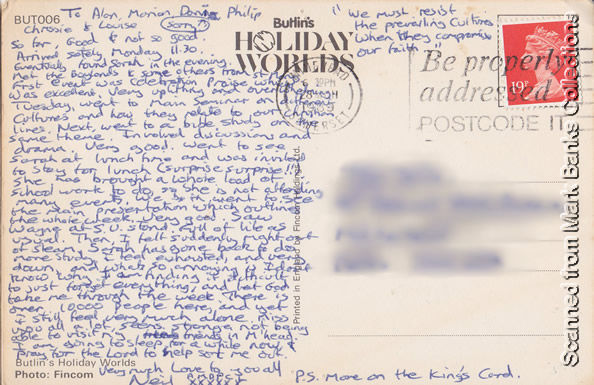 BUT005
To Alan, Marion, Philip
Chrissie & Louise (sorry!)
So far, Good & not so good
Arrived safely Monday 11.30.
Eventually found Sarah in the evening.
Met the Boylands & some others from
First event was Celebration Praise which
was excellent. Very uplifting and overwhelming
Tuesday, went to main Seminar on different
Cultures and how they relate to our Christian
lives. Next, went to a bible study on the
same theme. Involved discussions and
drama. Very good. Went to see
Sarah at lunch time and was invited
to stay for lunch (surprise surprise!!)
She has brought a whole load of
school work to do, so she is not attending
many events, do both went to see
the main presentation which outlines
the whole week. Very good. Saw
Wayne at S.U. stand. full of life as
usual. Then, I felt suddenly right out
of steam. Sarah has gone back to do
more study. I feel exhausted, and very
down, and what's so annoying is I don't
know why. I am finding it difficult
to just forget everything, and let God
take me through the week. There is
over 10000 people here, and yet
I still feel very much alone. Miss
you all a lot, seems strange not being
able to visit my friends in M'head.
I am going to sleep for a while now &
pray for the Lord to help sort me out.
Very much Love to you all
Neil
Butlin's Holiday Worlds
Photo: Fincom
Butlin's
HOLIDAY
WORLDS
Printed in England by Fincom Holdings Ltd.
"We must resist
the prevailing Cultures
when they compromise
our faith"
MINEHEAD
SOMERSET
Be properly
addressed
POSTCODE IT
19P
P.S. More on the King's Card.
Scanned from Mark Banks Collections